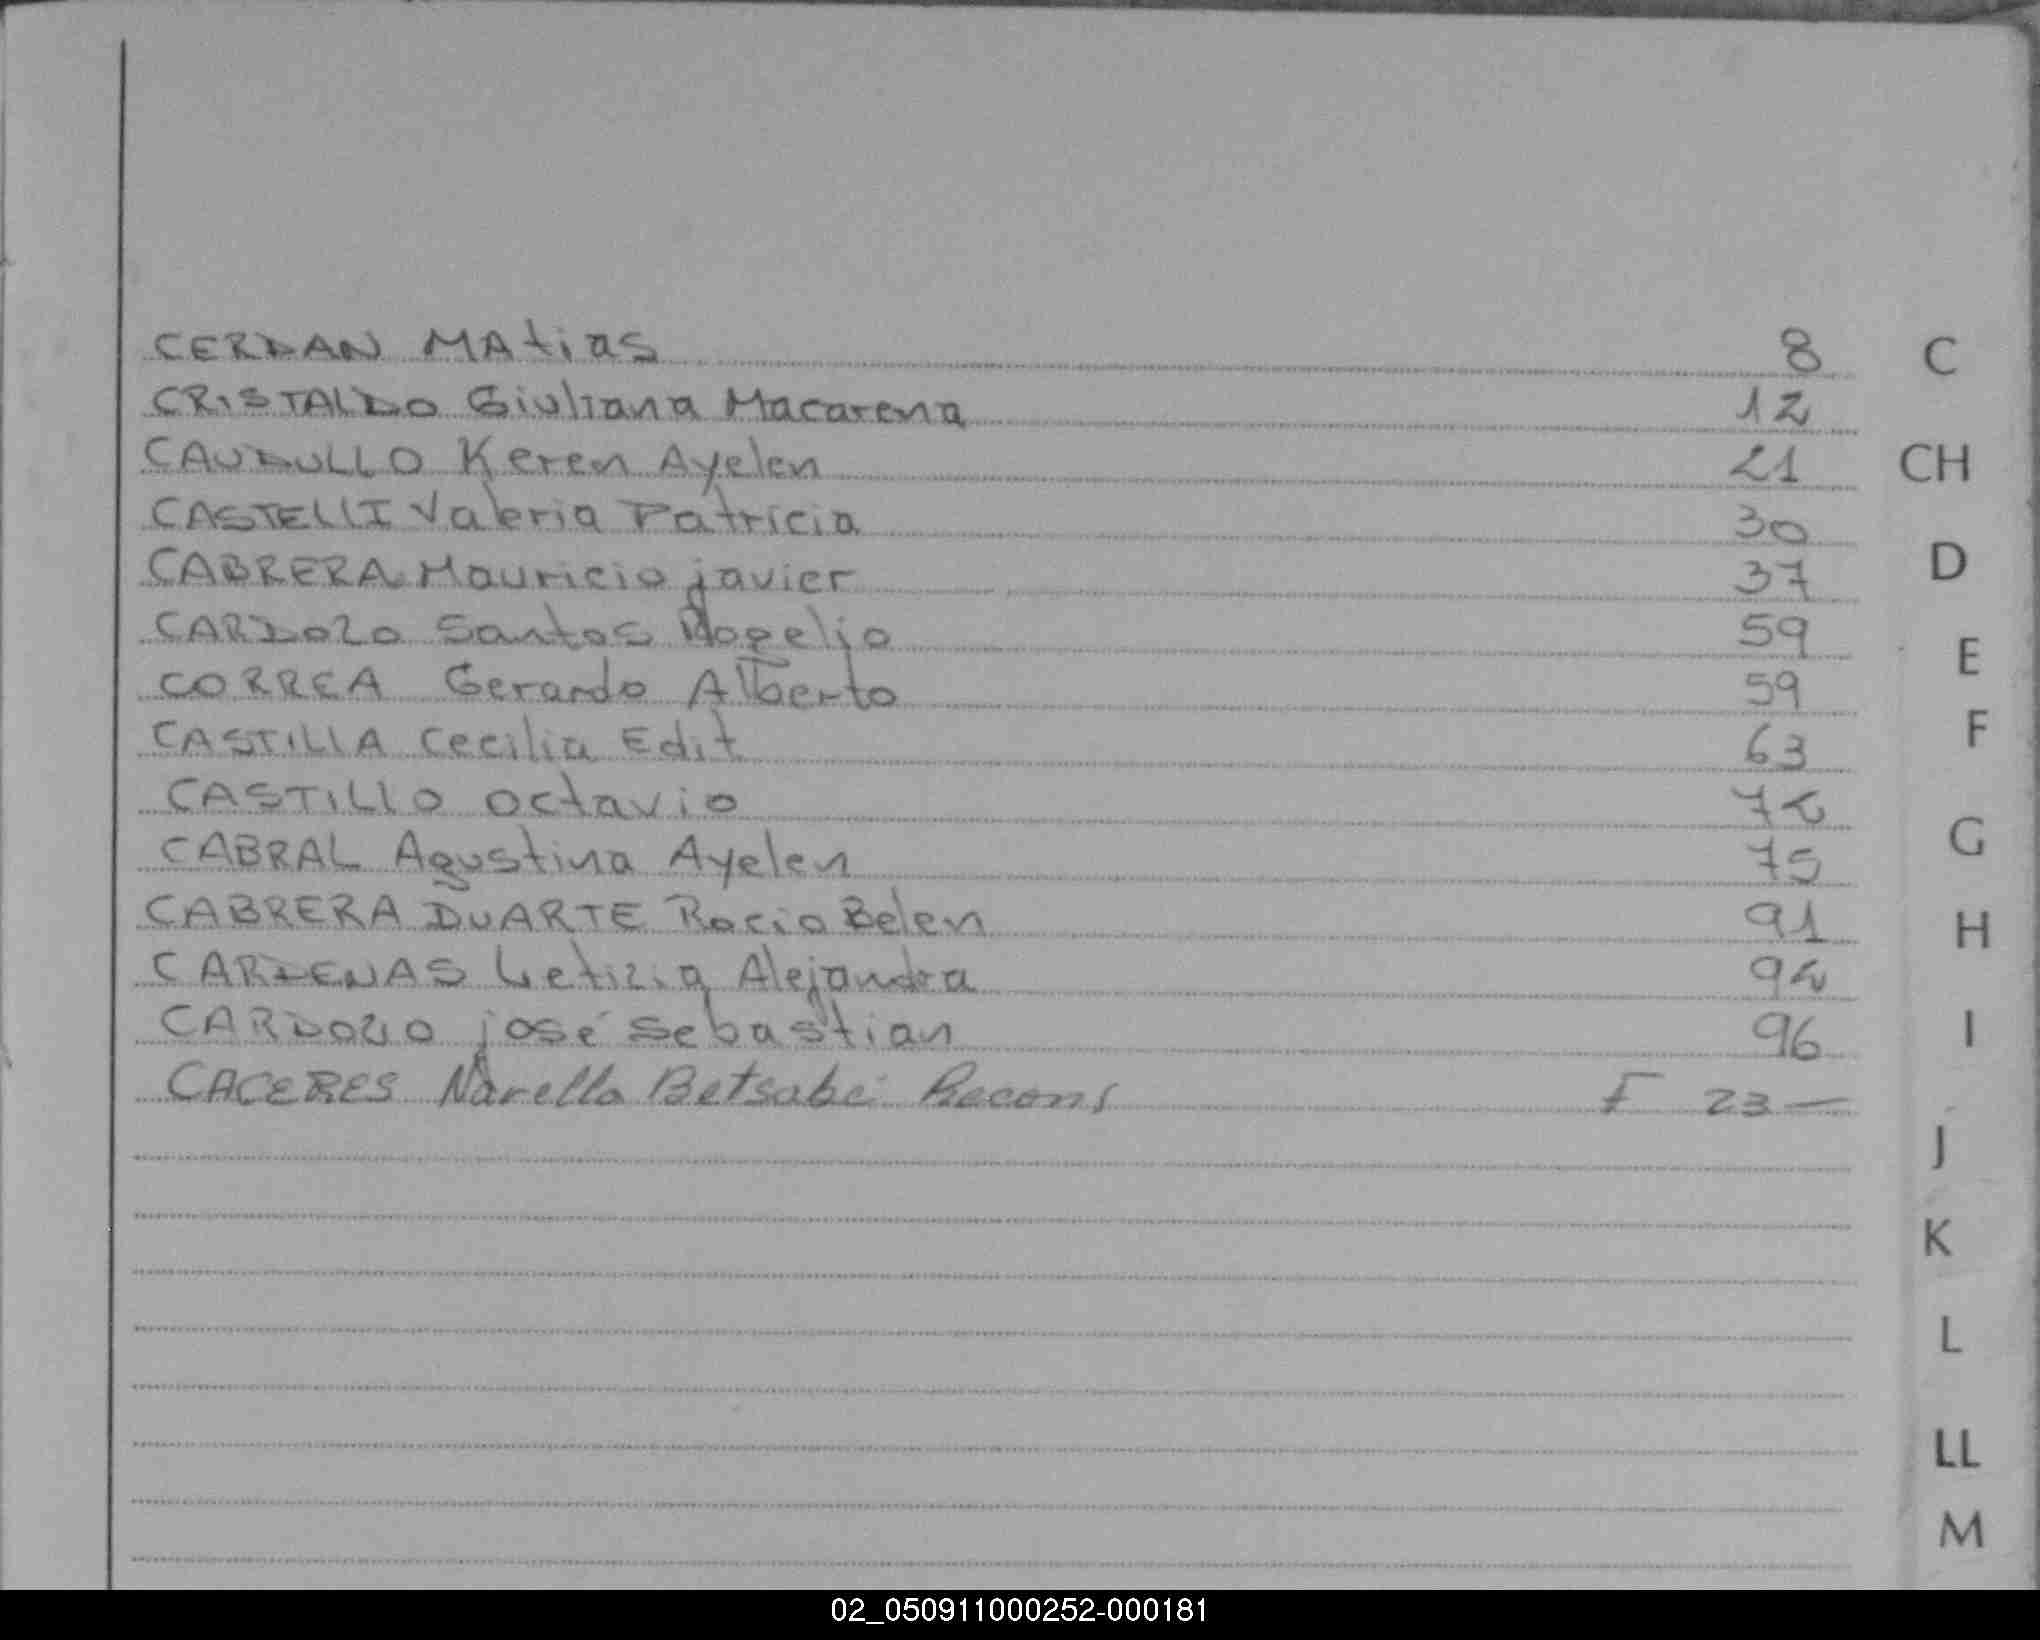 CERDAN MAtias 8 C
CRISTALDO Giuliana Macarena 12
CAUDULLO Keren Ayelen 21 CH
CASTELLI Valeria Patricia 30
CABRERA Mauricio javier 37 D
CARDOZO Santos Rogelio 59
CORREA Gerardo Alberto 59 E
CASTILLA Cecilia Edit 63 F
CASTILLO octavio 72
CABRAL Agustina Ayelen 75 G
CABRERA DUARTE Rocio Belen 91 H
CARDENAS Letizia Alejandra 92
CARDOZO josé Sebastian 96 I
CACERES Narella Betsabé Recons F 23 —
J
K
L
LL
M
02_050911000252-000181